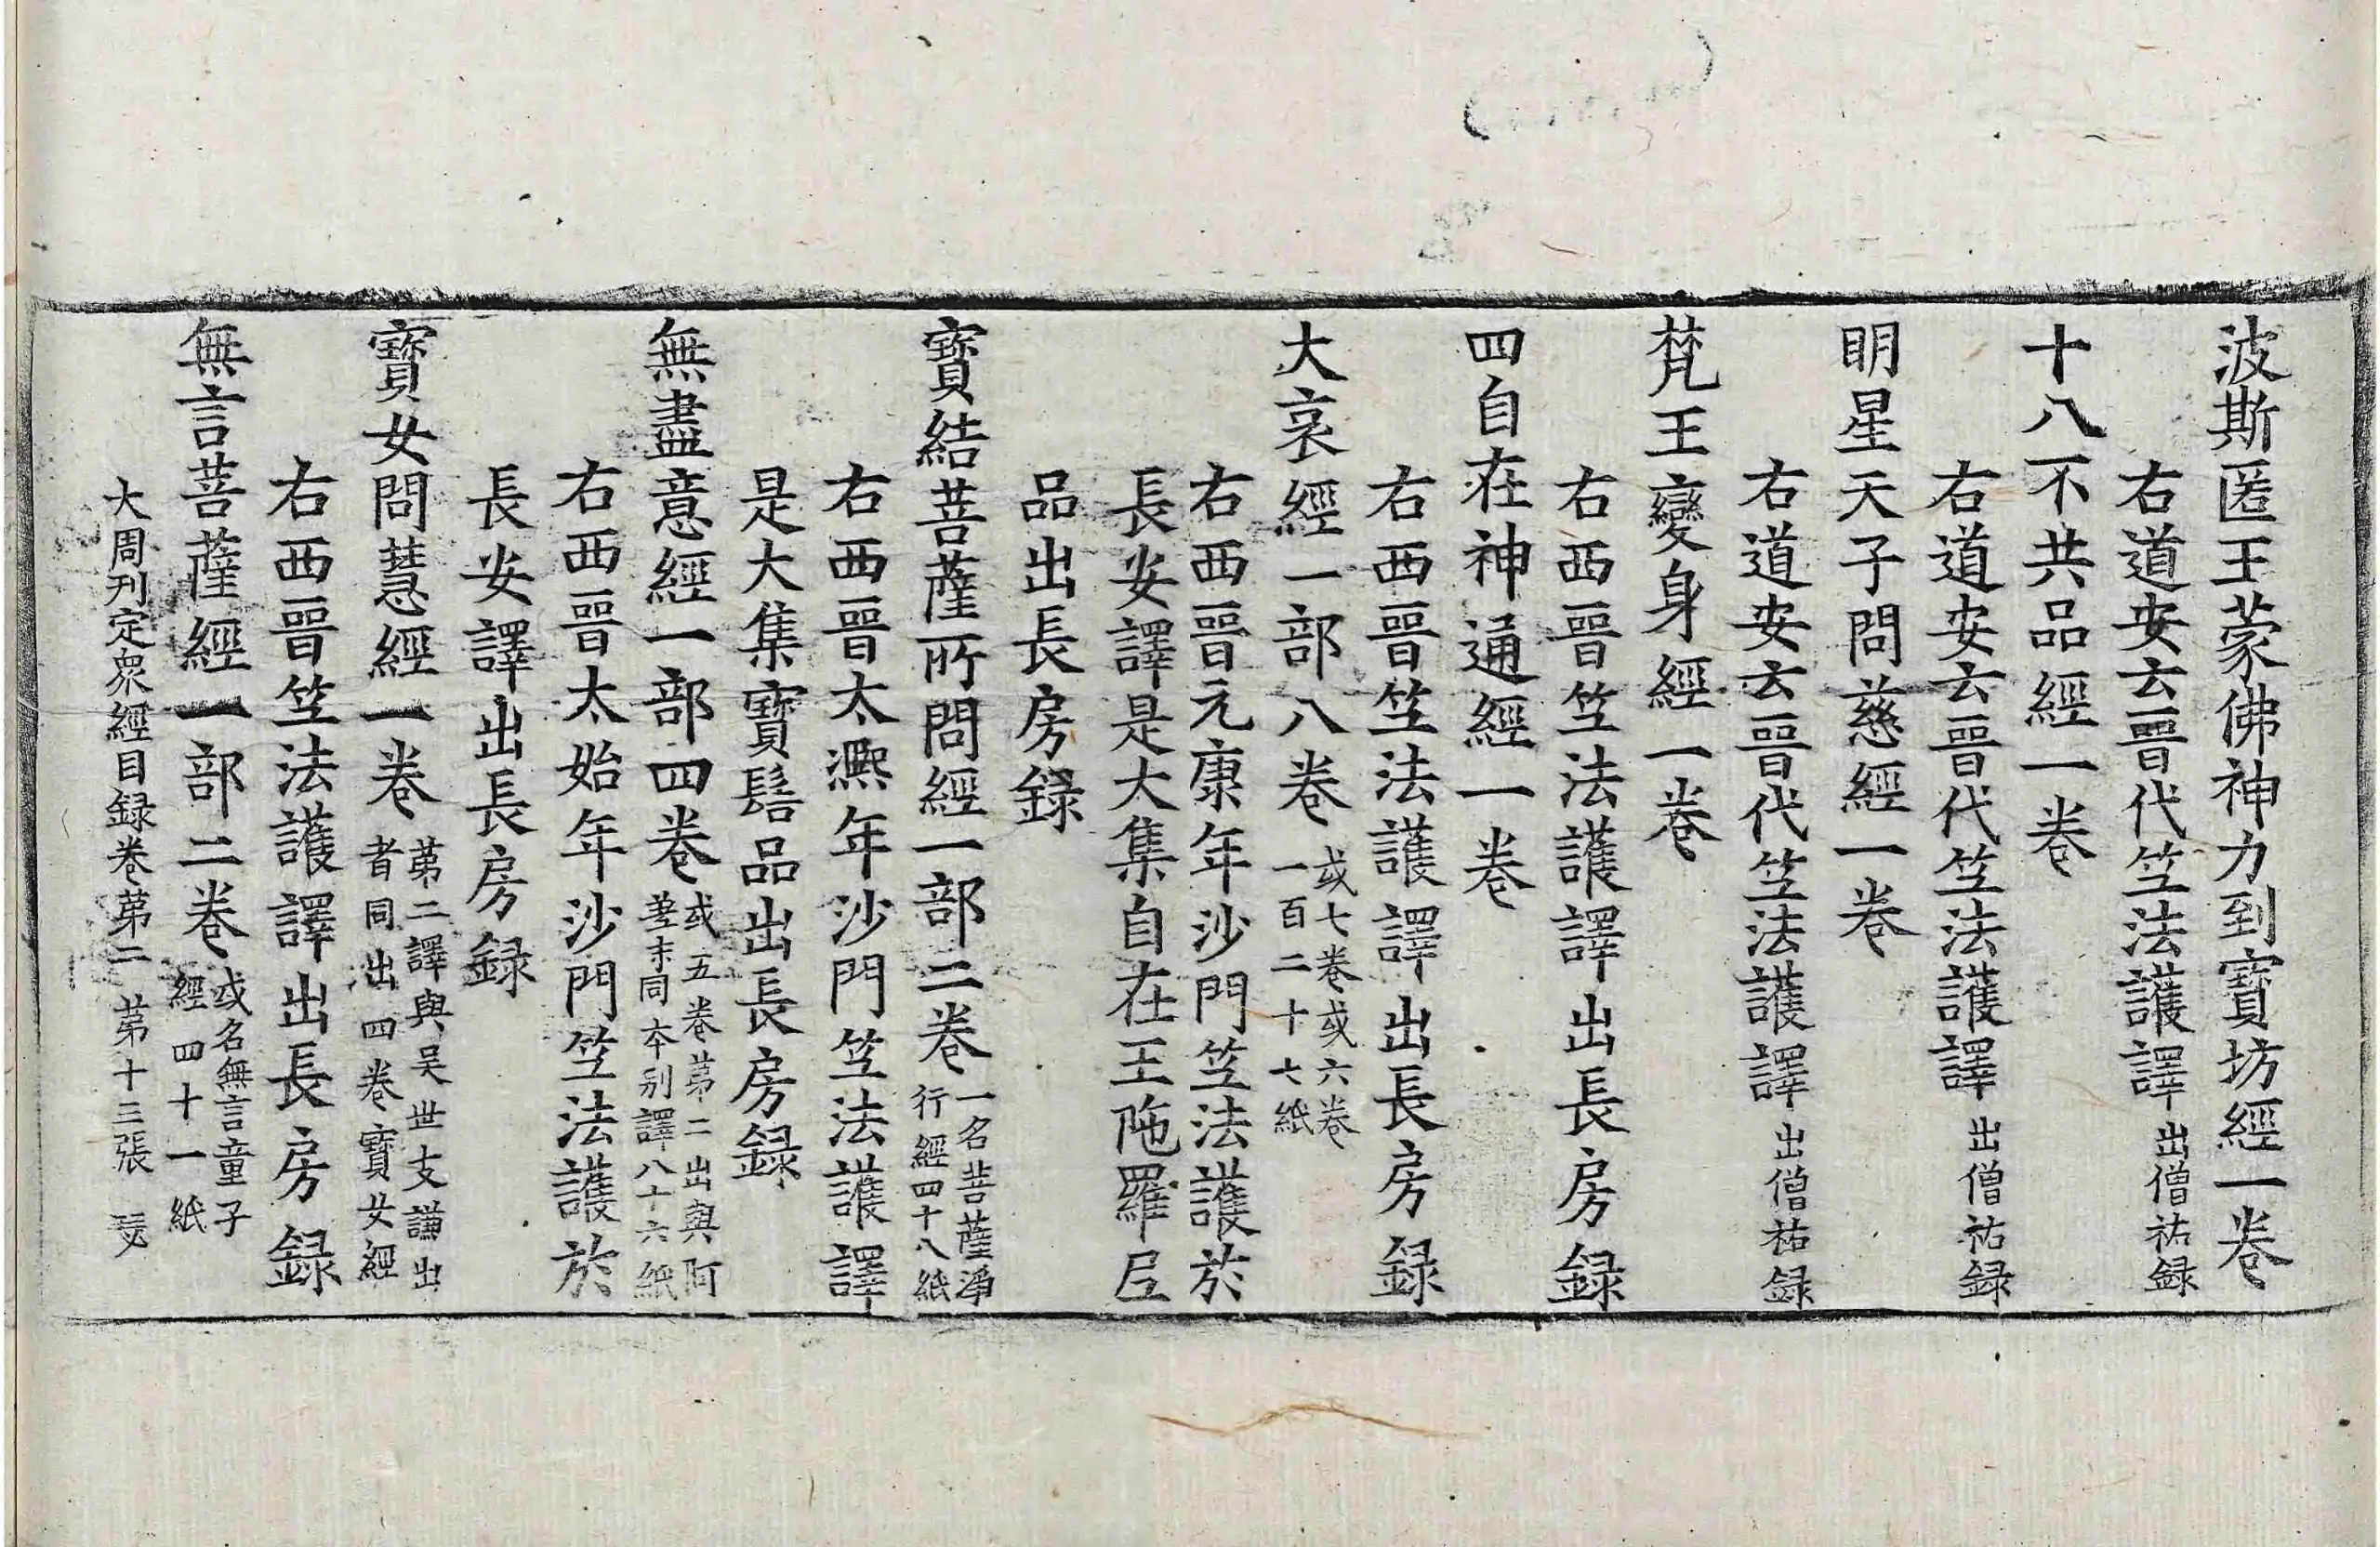 波斯匿王蒙佛神力到寶坊經一卷
右道安云晉代竺法護譯出僧祐録
十八不共品經一卷
右道安云晉代竺法護譯出僧祐録
明星天子問慈經一卷
右道安云晉代竺法護譯出僧祐録
梵王變身經一卷
右西晉竺法護譯出長房録
四自在神通經一卷
右西晉竺法護譯出長房録
大哀經一部八卷
或七卷或六卷
一百二十七紙
右西晉元康年沙門竺法護於
長安譯是大集自在王陁羅尼
品出長房録
寶結菩薩所問經一部二卷
一名菩薩淨
行經四十八紙
右西晉太凞年沙門竺法護譯
是大集寶髻品出長房録
無盡意經一部四卷
或五卷第二出與阿
差末同本别譯八十六紙
右西晉太始年沙門竺法護於
長安譯出長房録
寶女問慧經一卷
第二譯與吴世支謙出
者同出四卷寶女經
右西晉竺法護譯出長房録
無言菩薩經一部二卷
或名無言童子
經四十一紙
大周刊定衆經目録卷第二 第十三張